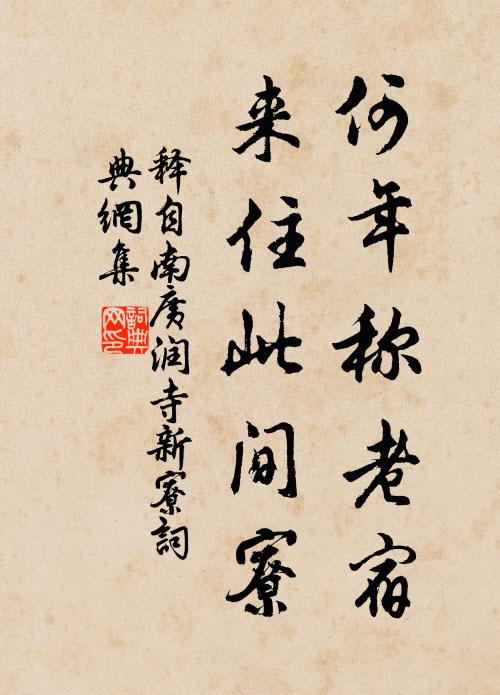 何年称老宿
来住此间寮
释自南廣润寺新寮詞
典網集
詞典网印